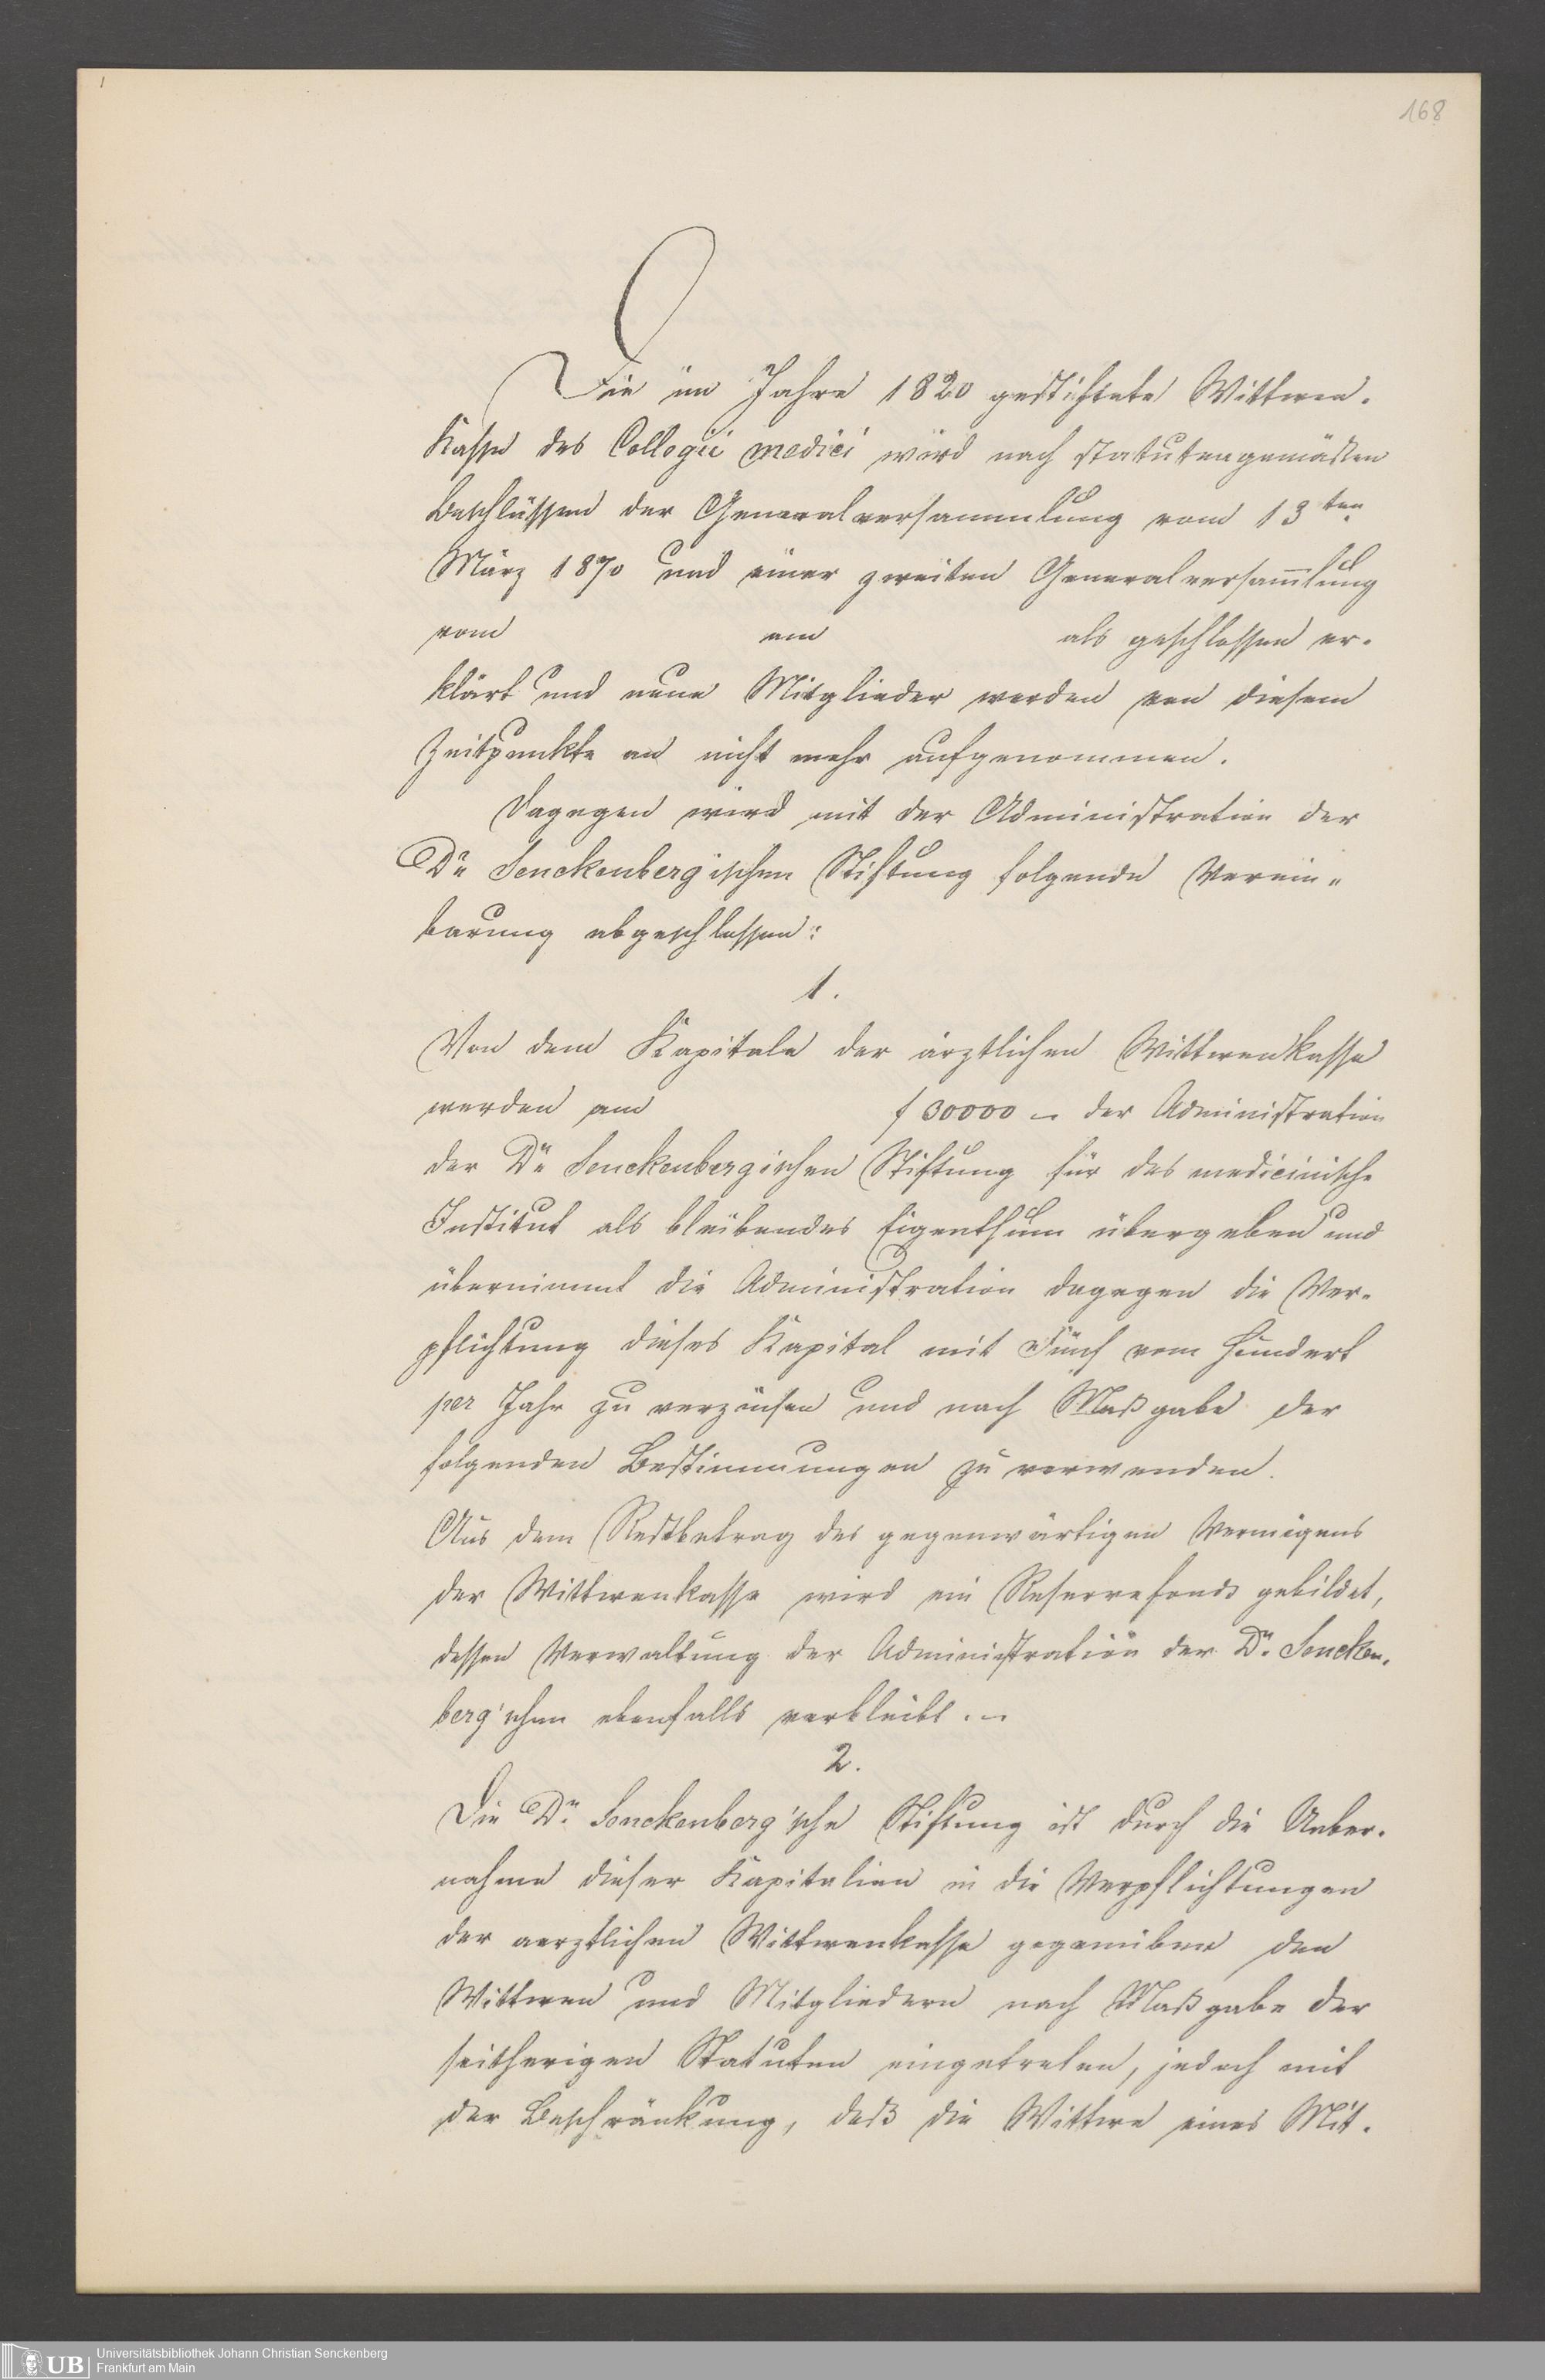 168
Die im Jahre 1820 gestiftete Wittwen-
Kasse des Collegii medici wird nach statutengemäßen
Beschlüssen der Generalversammlung vom 13ten
März 1870 und einer zweiten Generalversam̄lung
vom am als geschlossen er-
klärt und neue Mitglieder werden von diesem
Zeitpunkte an nicht mehr aufgenommen.
Dagegen wird mit der Administration der
Dr. Senckenbergischen Stiftung folgende Verein-
barung abgeschlossen:
1.
Von dem Kapitale der ärztlichen Wittwenkasse
werden am f 30000 – der Administration
der Dr. Senckenbergischen Stiftung für das medicinische
Institut als bleibendes Eigenthum übergeben und
übernimmt die Administration dagegen die Ver-
pflichtung dieses Kapital mit Fünf vom Hundert
per Jahr zu verzinsen und nach Maßgabe der
folgenden Bestimmungen zu verwenden.
Aus dem Restbetrag des gegenwärtigen Vermögens
der Wittwenkasse wird ein Reservefonds gebildet,
dessen Verwaltung der Administration der Dr. Sencken-
berg'schen ebenfalls verbleibt. –
2.
Die Dr. Senckenberg'sche Stiftung ist durch die Ueber-
nahme dieser Kapitalien in die Verpflichtungen
der aerztlichen Wittwenkasse gegenüber den
Wittwen und Mitgliedern nach Maßgabe der
seitherigen Statuten eingetreten, jedoch mit
der Beschränkung, daß die Wittwe eines Mit-
UB
Universitätsbibliothek Johann Christian Senckenberg
Frankfurt am Main